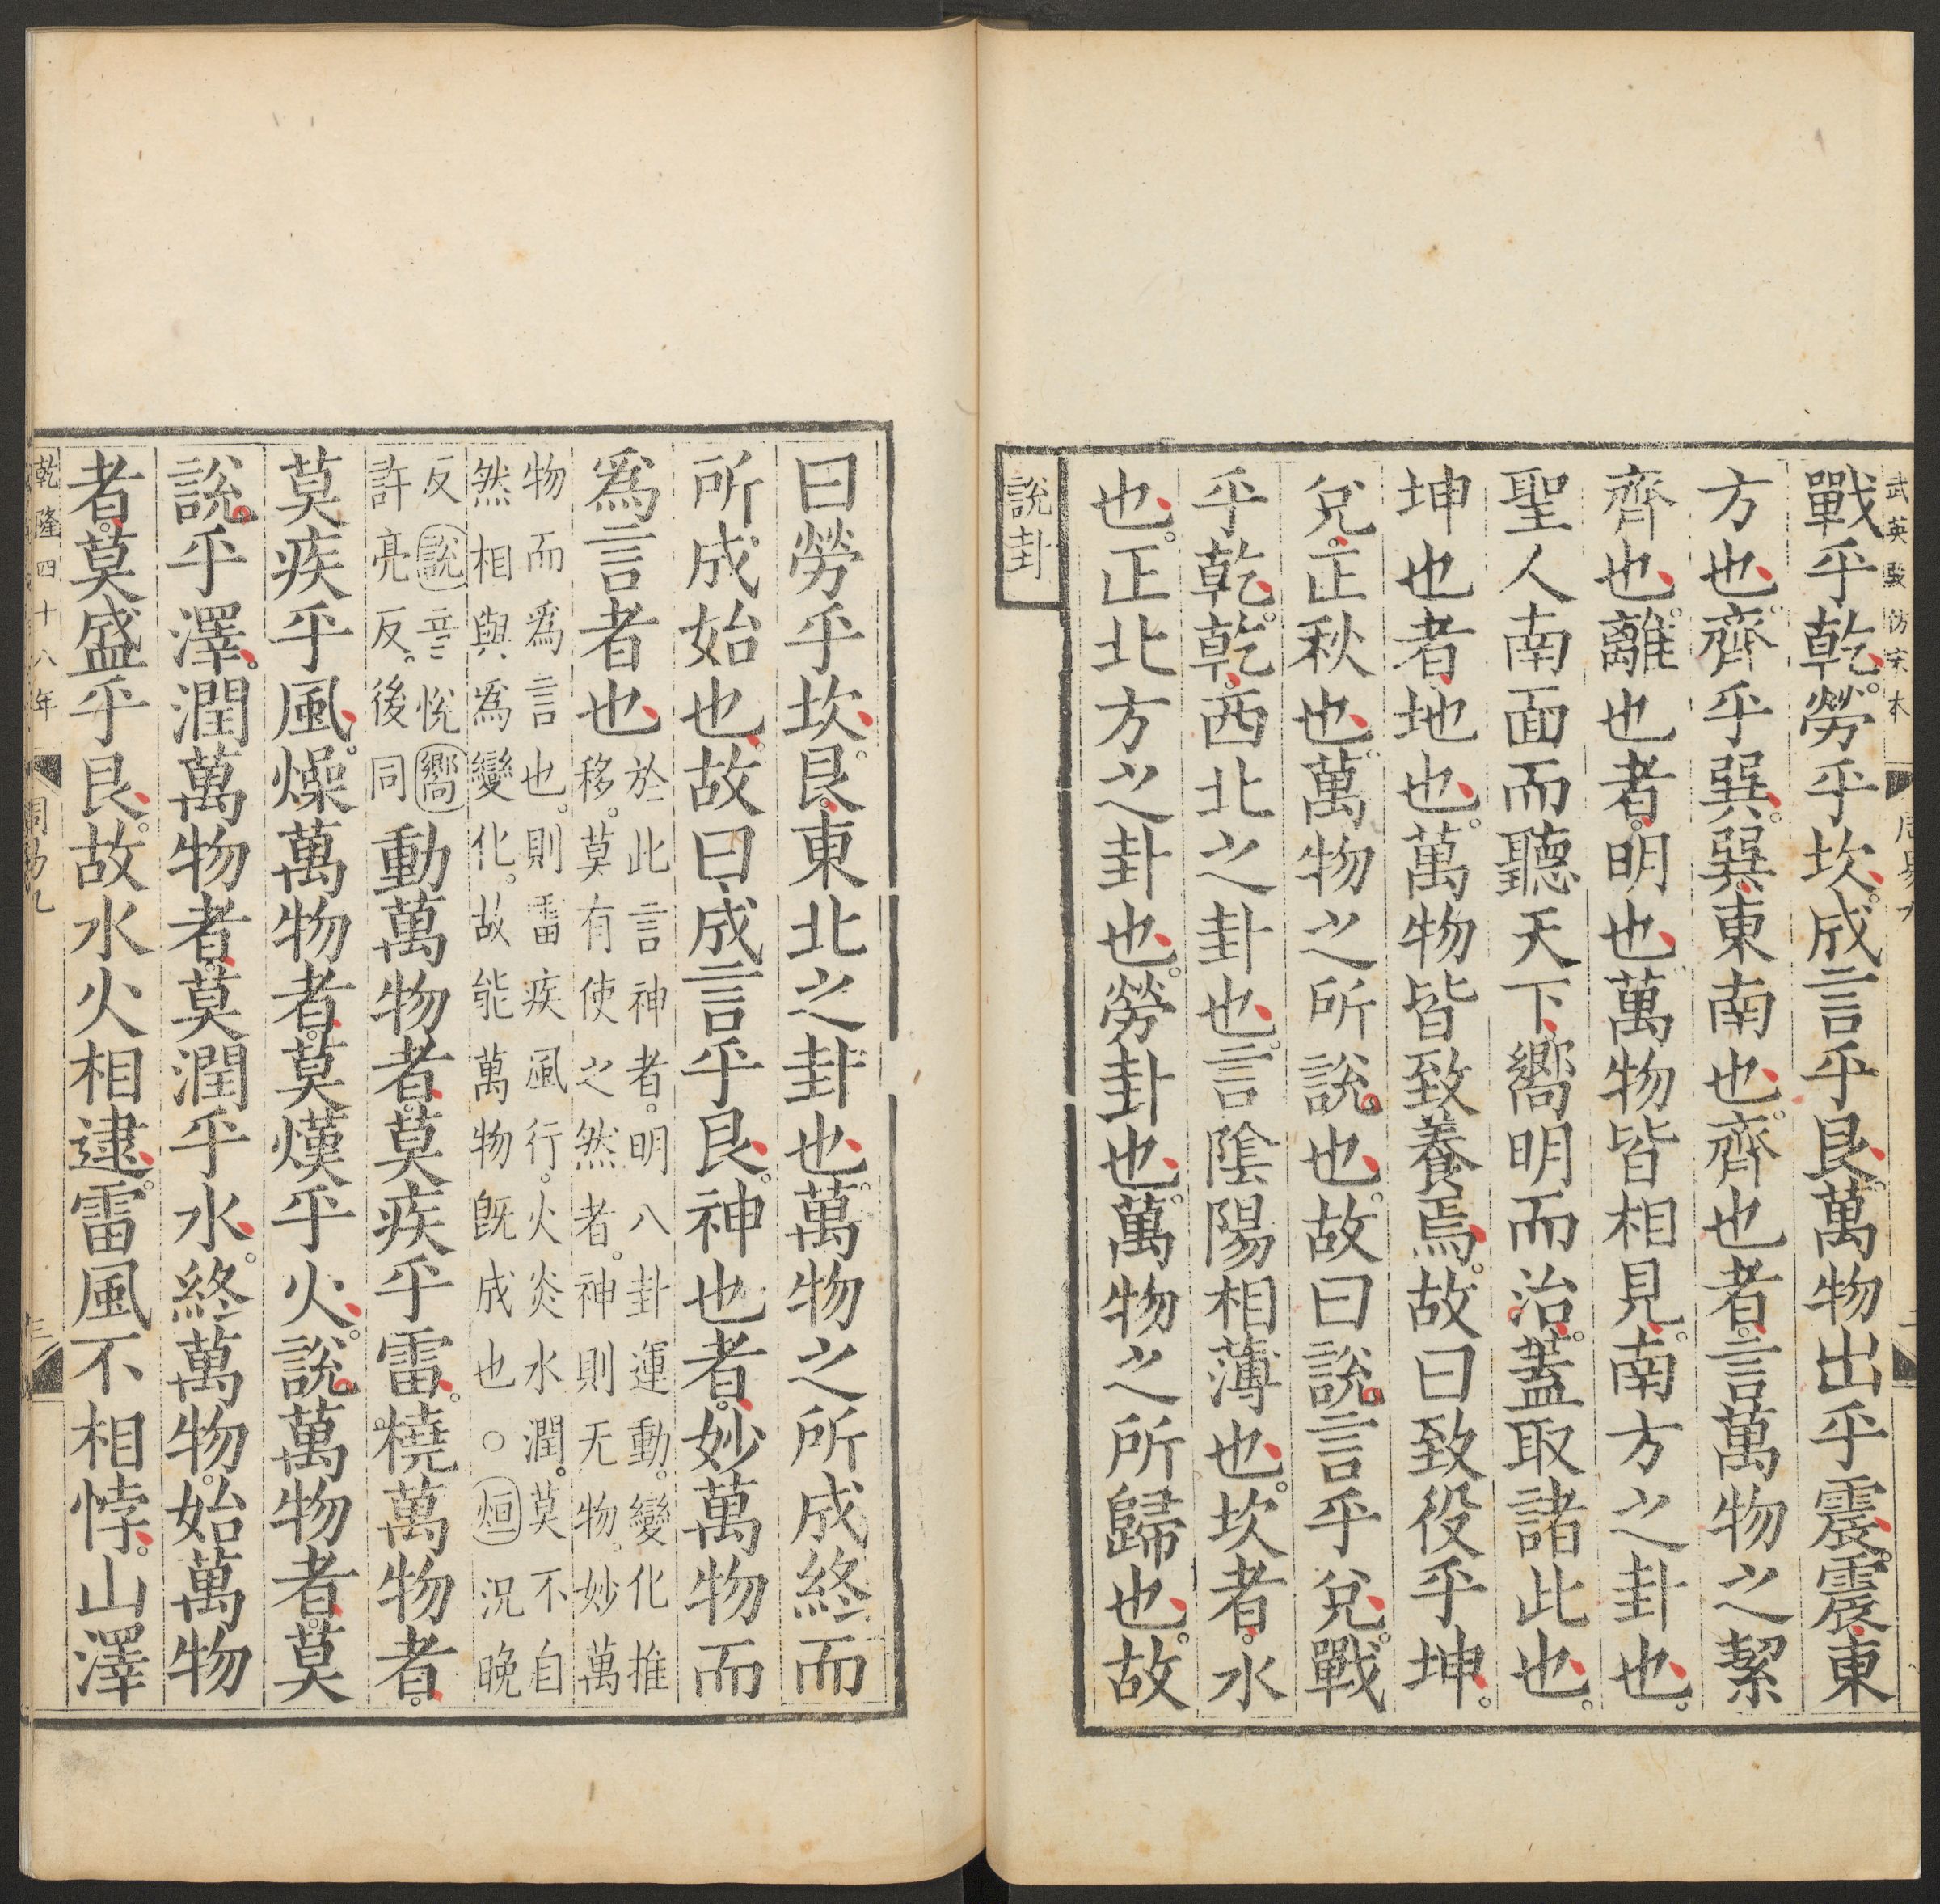 武英殿仿宋本
戰乎乾勞乎坎成言乎艮萬物出乎震震東
方也齊乎巽巽東南也齊也者言萬物之絜
齊也離也者明也萬物皆相見南方之卦也
聖人南面而聽天下嚮明而治蓋取諸此也
坤也者地也萬物皆致養焉故曰致役乎坤
兌正秋也萬物之所說也故曰說言乎兌戰
乎乾乾西北之卦也言陰陽相薄也坎者水
也正北方之卦也勞卦也萬物之所歸也故
說卦
曰勞乎坎艮東北之卦也萬物之所成終而
所成始也故曰成言乎艮神也者妙萬物而
為言者也
於此言神者明八卦運動變化推
移莫有使之然者神則无物妙萬
物而為言也則雷疾風行火炎水潤莫不自
然相與為變化故能萬物既成也○烜況晚
反說音悅嚮
許亮反後同
動萬物者莫疾乎雷橈萬物者
莫疾乎風燥萬物者莫熯乎火說萬物者莫
說乎澤潤萬物者莫潤乎水終萬物始萬物
者莫盛乎艮故水火相逮雷風不相悖山澤
乾隆四十八年
三